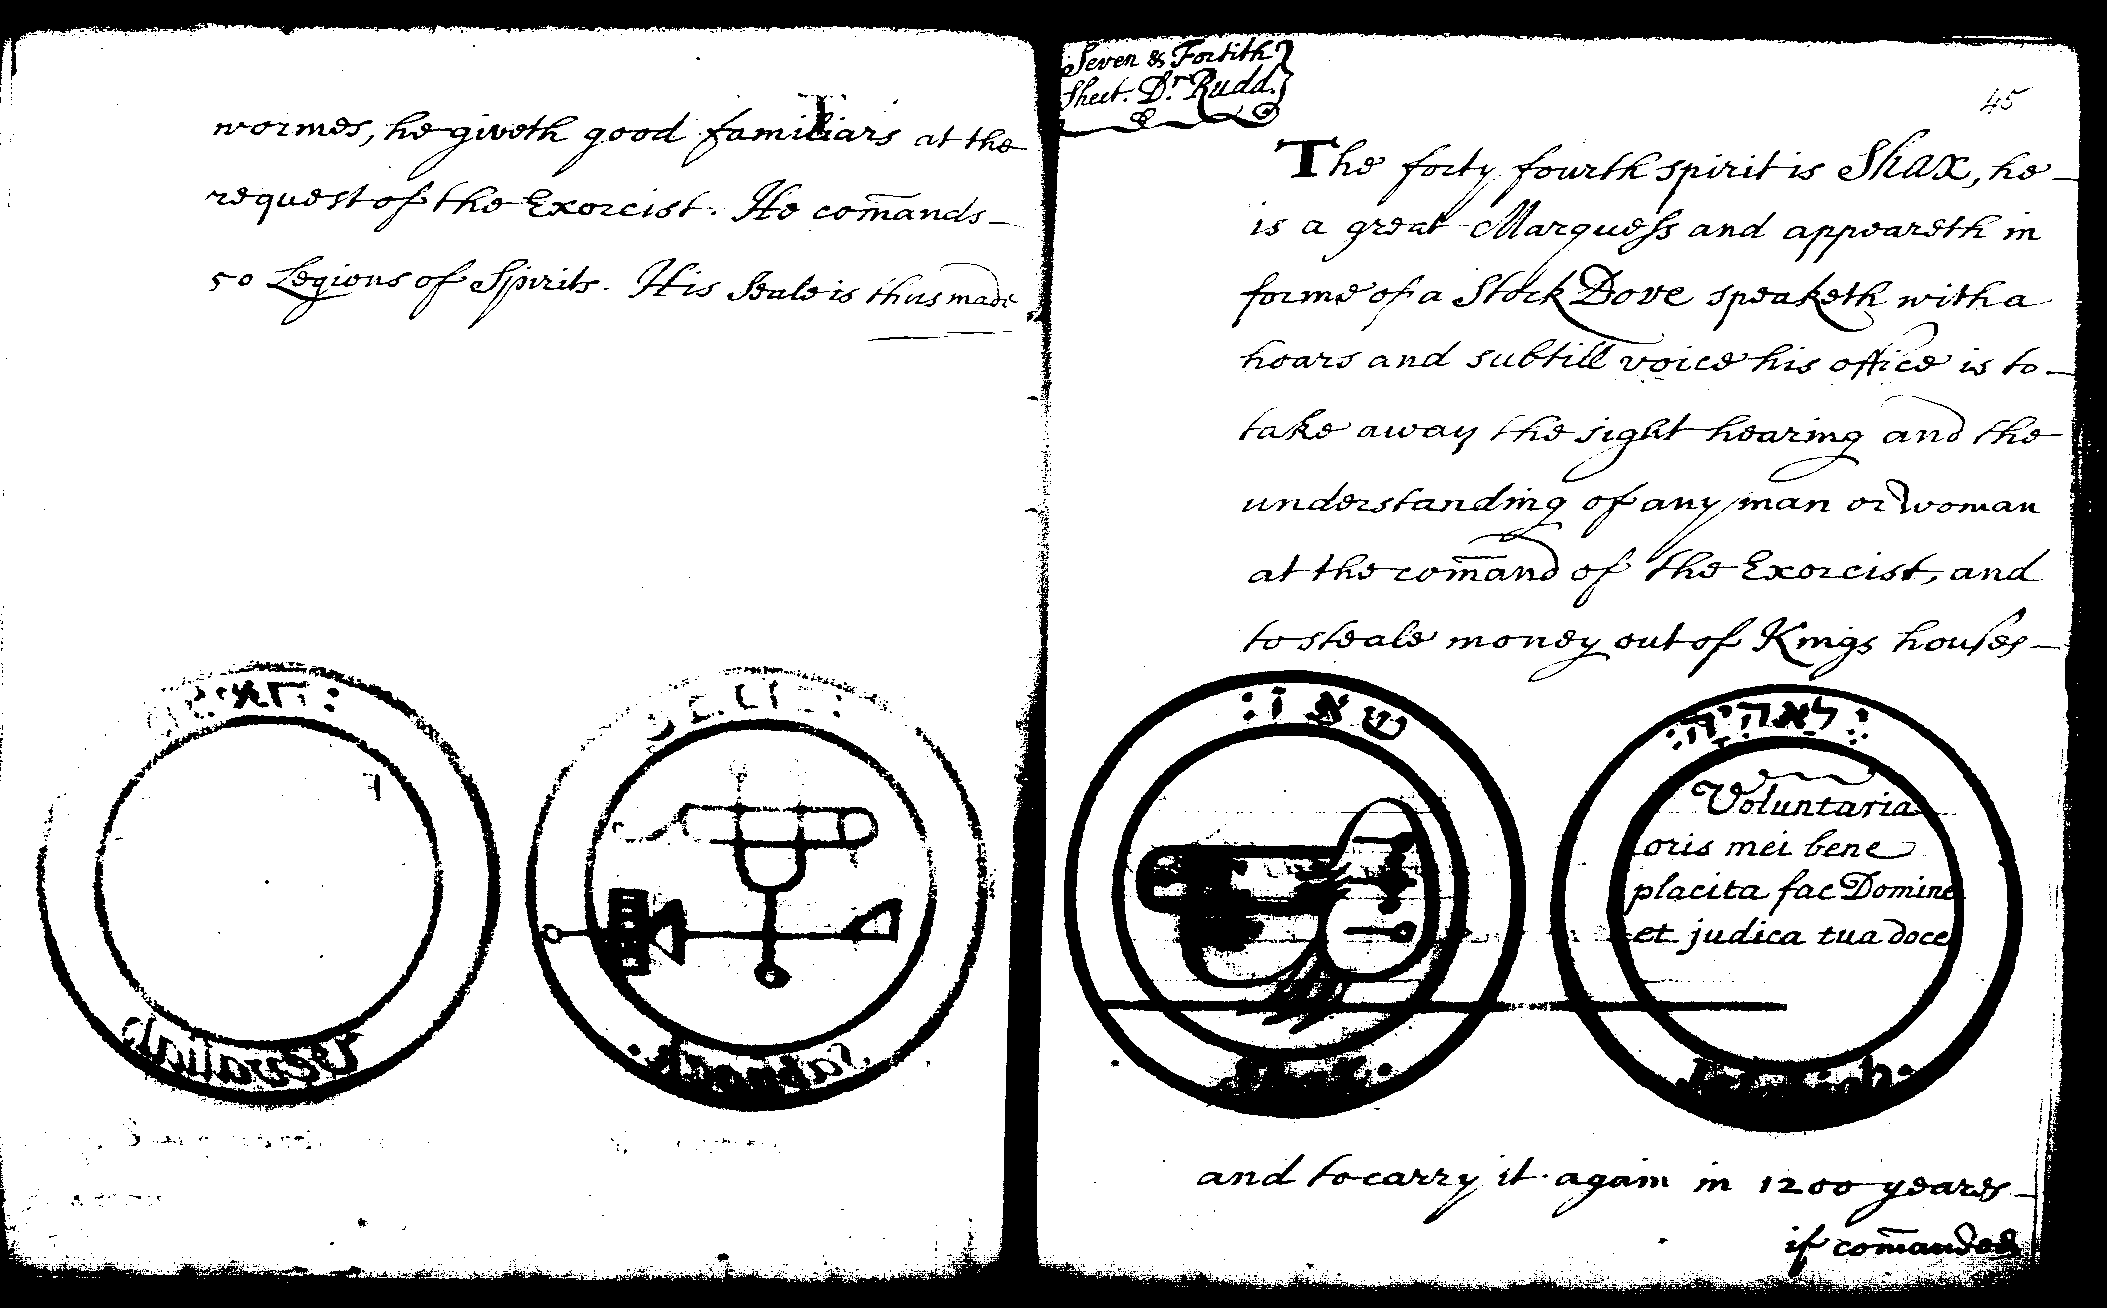 wormes, he giveth good familiars at the
request of the Exorcist. He com̄ands
50 Legions of Spirits. His Seale is thus made
Seven & Fortith
Sheet. Dr. Rudd.
45
The forty fourth spirit is Shax, he
is a great Marquess and appeareth in
forme of a Stock Dove speaketh with a
hoars and subtill voice his office is to
take away the sight hearing and the
understanding of any man or woman
at the com̄and of the Exorcist, and
to steale money out of Kings houses
שאז:
Shax.
Voluntaria
oris mei bene
placita fac Domine
et judica tua doce
and to carry it again in 1200 yeares
if com̄anded